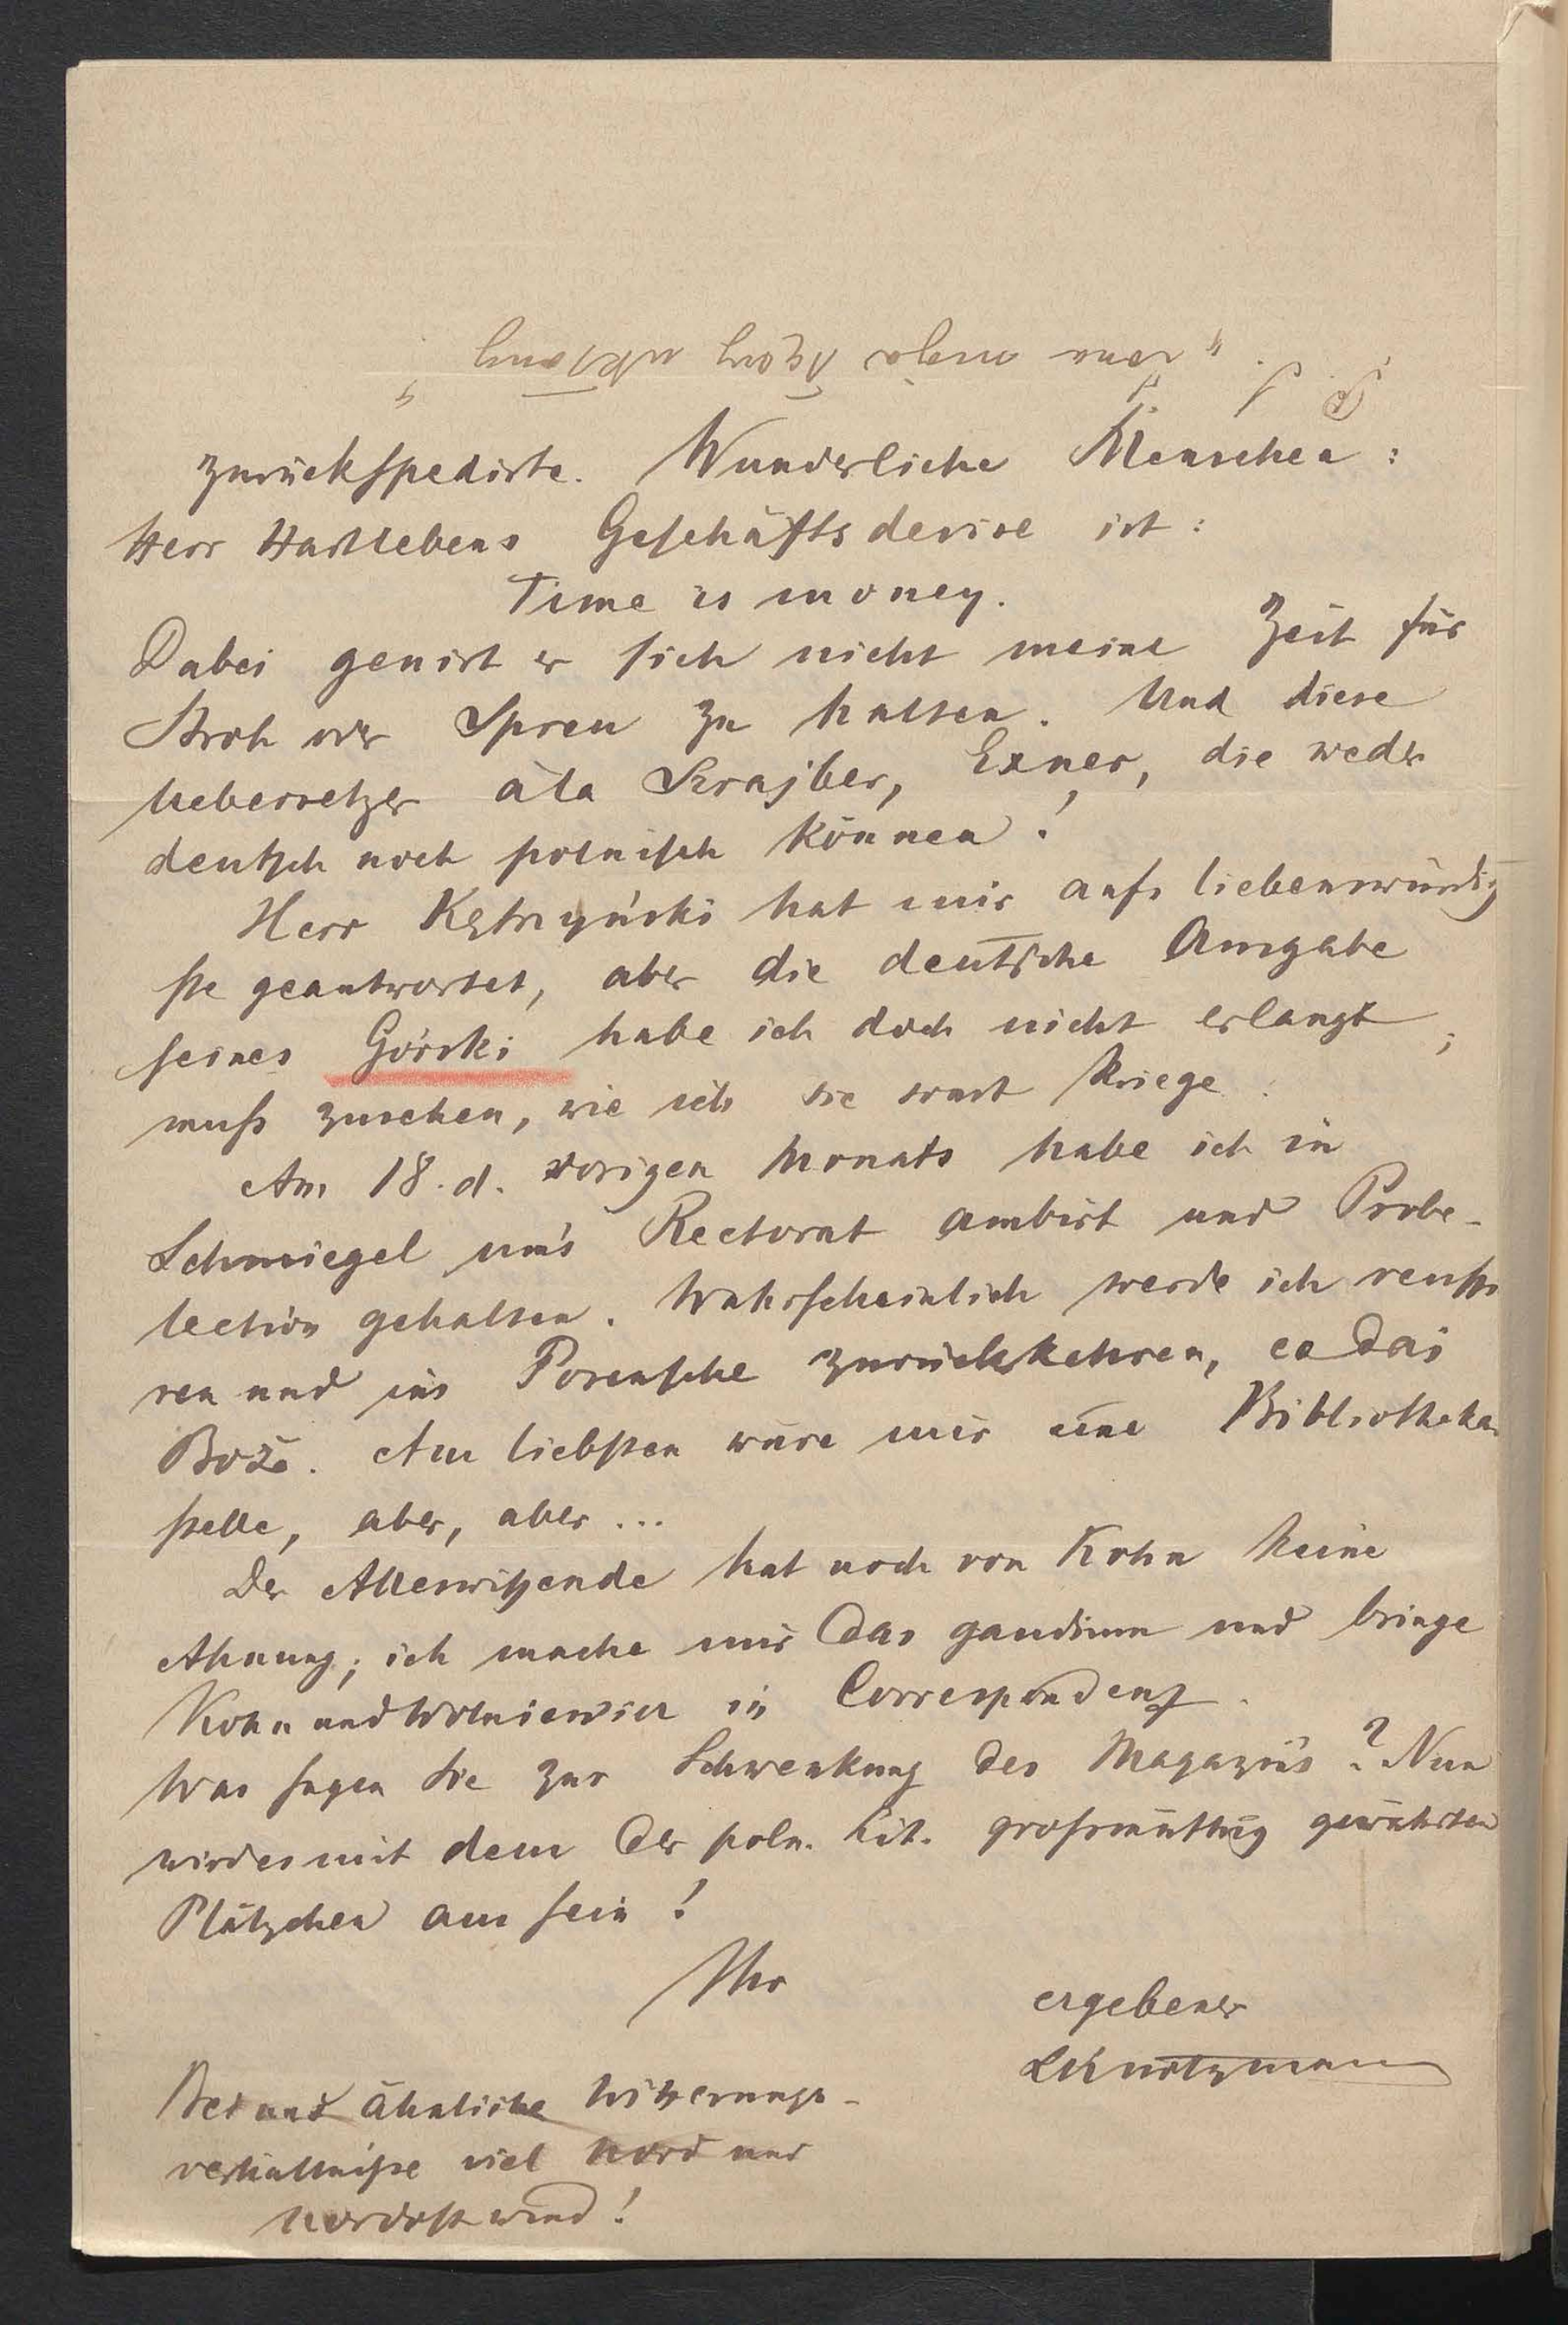 zurückspedirte. Wunderliche Menschen:
Herr Hartlebens Geschäftsdevise ist:
Time is money.
Dabei genirt er sich nicht meine Zeit für
Stroh oder Spreu zu halten. Und diese
Uebersetzer àla Skrajber, Exner, die weder
deutsch noch polnisch können!
Herr Kętrzyński hat mir aufs liebenswürdig
ste geantwortet, aber die deutsche Ausgabe
seines Górski habe ich doch nicht erlangt;
muß zusehen, wie ich sie sonst kriege.
Am 18. d. vorigen Monats habe ich in
Schmiegel um's Rectorat ambirt und Probe-
lection gehalten. Wahrscheinlich werde ich reussi
ren und ins Posensche zurückkehren, co daj
Boże. Am liebsten wäre mir eine Bibliothekar
stelle, aber, aber ...
Der Alleswißende hat noch von Kohn keine
Ahnung; ich mache mir das gaudium und bringe
Kohn und Wolniewicz in Correspondenz.
Was sagen Sie zur Schwenkung des Magazins? Nun
wird es mit dem der poln. Lit. großmüthig gewährten
Plätzchen aus sein!
Ihr
ergebener
LKurtzmann
Bei uns ähnliche Witterungs-
verhältniße viel Nord und
Nordostwind!